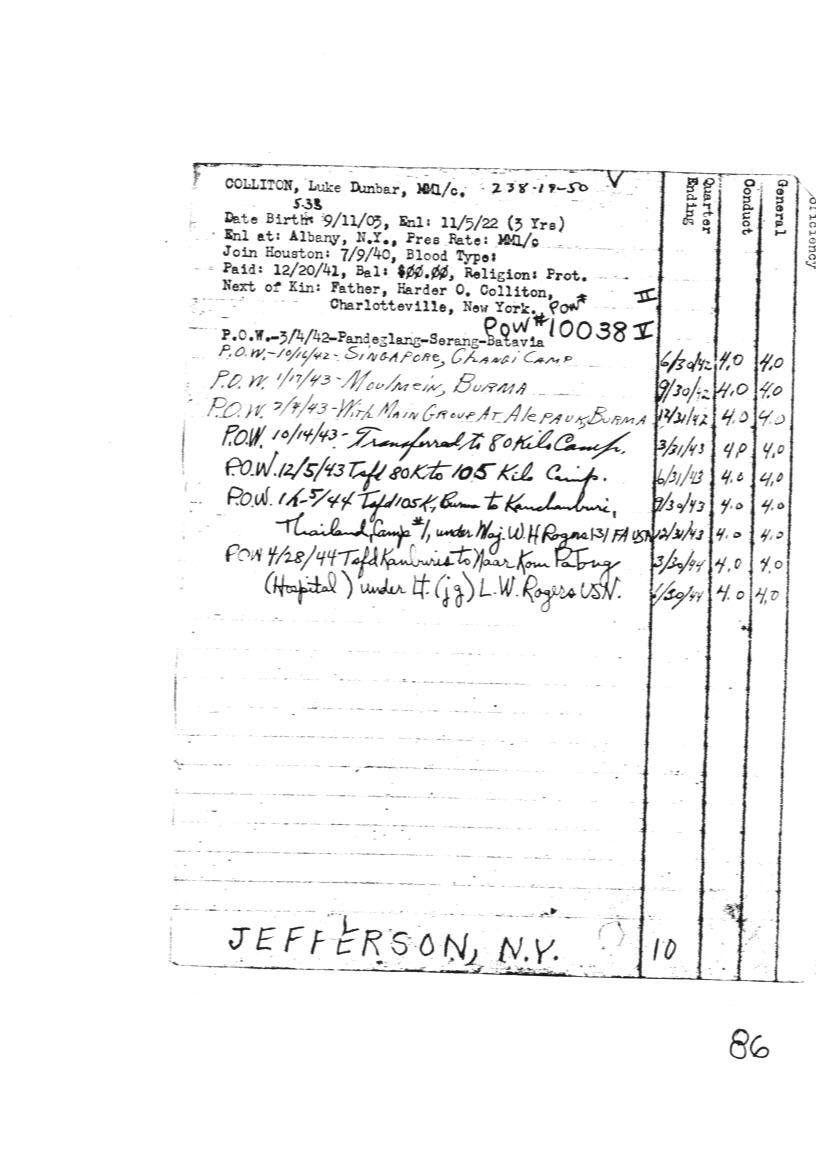 COLLITON, Luke Dunbar, MM1/c. - 238-19-50 V
538
Date Birth: 9/11/03, Enl: 11/5/22 (3 Yrs)
Enl at: Albany, N.Y., Pres Rate: MM1/c
Join Houston: 7/9/40, Blood Type:
Paid: 12/20/41, Bal: $00.00, Religion: Prot.
Next of Kin: Father, Harder O. Colliton,
Charlotteville, New York. POW# II
POW#10038 V
P.O.W.-3/4/42-Pandeglang-Serang-Batavia
Quarter Ending
Conduct
General
oficiency
P.O.W.-10/16/42- SINGAPORE, CHANGI CAMP 6/30/42 4.0 4.0
P.O.W. 1/17/43-MOULMEIN, BURMA 9/30/42 4.0 4.0
P.O.W. 2/4/43-WITH MAIN GROUP AT ALEPAUK, BURMA 12/31/42 4.0 4.0
P.O.W. 10/14/43-Transferred to 80 Kilo Camp. 3/31/43 4.0 4.0
P.O.W. 12/5/43 Tsfd 80K to 105 Kilo Camp. 6/31/43 4.0 4.0
P.O.W. 1/ -5/44 Tsfd 105K, Burma to Kanchanburi, 9/30/43 4.0 4.0
Thailand, Camp #1, under Maj. W H Rogers 131 FA USA 12/31/43 4.0 4.0
POW 4/28/44 Tsfd Kanburis to Naar Kom Patong 3/30/44 4.0 4.0
(Hospital) under Lt. (jg) L.W. Rogers USN. 6/30/44 4.0 4.0
JEFFERSON, N.Y. 10
86